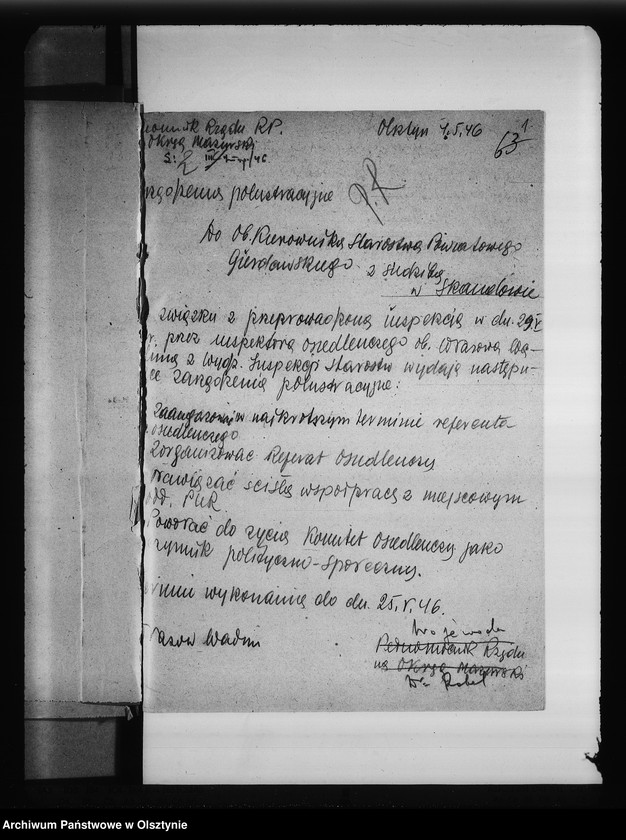 Rządu RP. Olsztyn 4.5.46 63 1
Okręg Mazurski
P.R.
polustracyjne
Do Ob. Kierownika Starostwa Powiatowego
Gierdawskiego z siedzibą
w Skandawie
związku z przeprowadzoną inspekcją w dn. 29
r. przez inspektora osiedleńczego ob.
z Wydz. Inspekcji Starostw wydaję następu-
ce zarządzenia polustracyjne:
w najkrótszym terminie referenta
osiedleńczego
Zorganizować Referat Osiedleńczy
Nawiązać ścisłą współpracę z miejscowym
PUR
Powołać do życia Komitet Osiedleńczy jako
czynnik polityczno-społeczny.
wykonania do dn. 25.V.46.
Wojewoda
Pełnomocnik Rządu
na Okręg Mazurski
Dr Robel
Archiwum Państwowe w Olsztynie